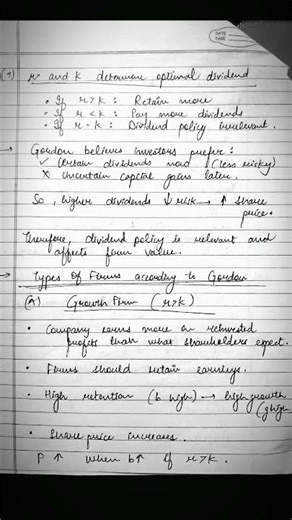 DATE
PAGE
(7) r and k determine optimal dividend
• If r > k : Retain more
• If r < k : Pay more dividends
• If r = k : Dividend policy irrelevant.
→ Gordon believes investors prefer :
✓ Certain dividends now (less risky)
✗ Uncertain capital gains later.
So, higher dividends ↓ risk → ↑ share
price.
Therefore, dividend policy is relevant and
affects firm value.
→ Types of Firms according to Gordon
(a) Growth Firm (r > k)
• Company earns more on reinvested
profits than what shareholders expect.
• Firms should retain earnings.
• High retention (b high) → high growth
(g high)
• Share price increases.
P ↑ when b ↑ if r > k.